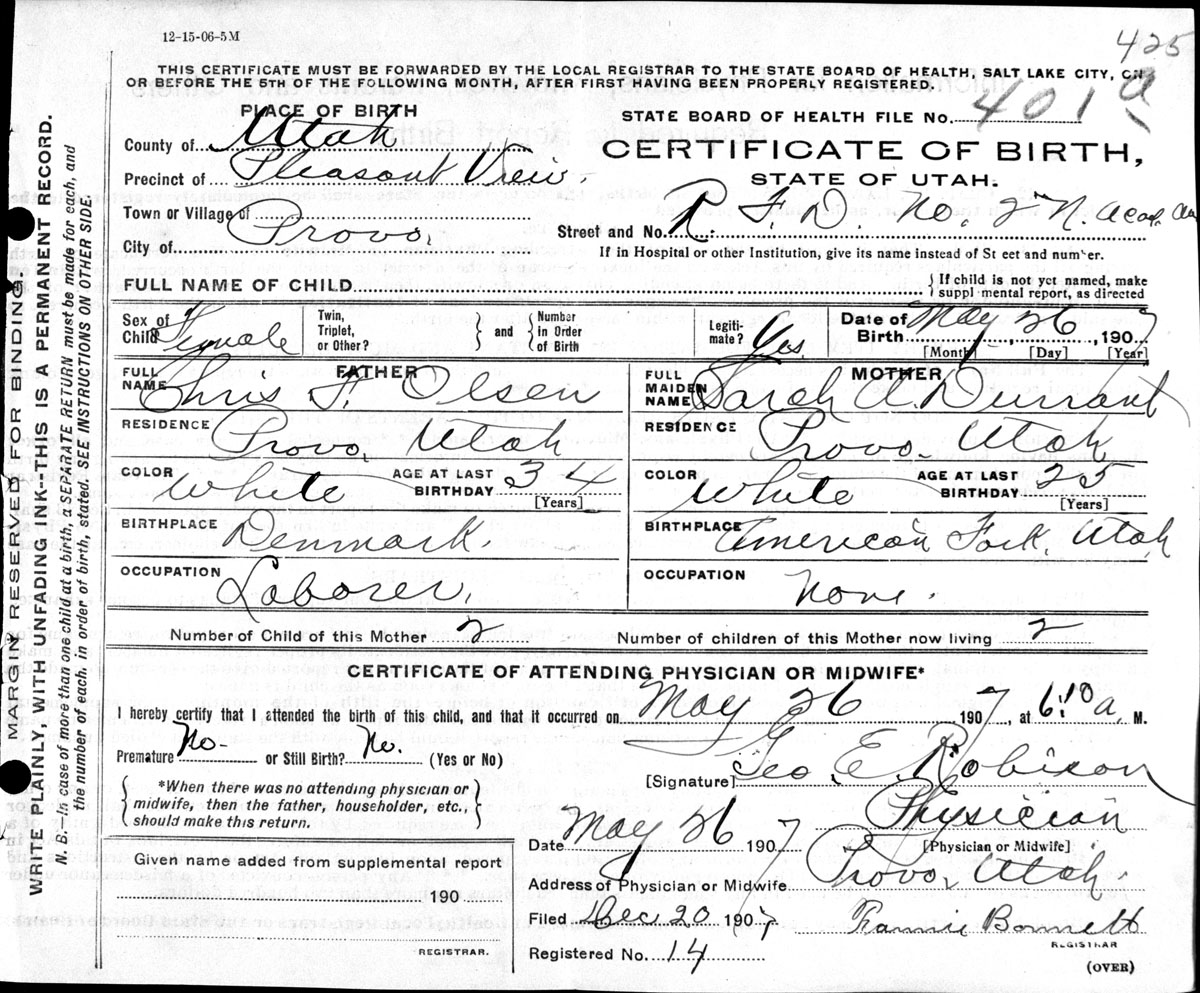 12-15-06-5M
425
THIS CERTIFICATE MUST BE FORWARDED BY THE LOCAL REGISTRAR TO THE STATE BOARD OF HEALTH, SALT LAKE CITY, ON
OR BEFORE THE 5TH OF THE FOLLOWING MONTH, AFTER FIRST HAVING BEEN PROPERLY REGISTERED.
PLACE OF BIRTH
STATE BOARD OF HEALTH FILE No. 401 a
County of Utah
CERTIFICATE OF BIRTH,
STATE OF UTAH.
Precinct of Pleasant View.
Town or Village of
Street and No. R. F. D. No. 2 N. Acad. Av
City of Provo.
If in Hospital or other Institution, give its name instead of St eet and number.
FULL NAME OF CHILD
{ If child is not yet named, make
suppl mental report, as directed
Sex of Child Female
Twin, Triplet, or Other? { } and { Number in Order of Birth
Legiti-mate? Yes.
Date of Birth May 26, 1907
[Month] [Day] [Year]
FATHER
FULL NAME Chris F. Olsen
MOTHER
FULL MAIDEN NAME Sarah A. Durrant
RESIDENCE Provo, Utah
RESIDENCE Provo, Utah
COLOR White AGE AT LAST BIRTHDAY 34 [Years]
COLOR White AGE AT LAST BIRTHDAY 25 [Years]
BIRTHPLACE Denmark.
BIRTHPLACE American Fork, Utah
OCCUPATION Laborer,
OCCUPATION None.
Number of Child of this Mother 2
Number of children of this Mother now living 2
CERTIFICATE OF ATTENDING PHYSICIAN OR MIDWIFE*
I hereby certify that I attended the birth of this child, and that it occurred on May 26 1907, at 6:10 a, M.
Premature No- or Still Birth? No. (Yes or No)
[Signature] Geo. E. Robison
{ *When there was no attending physician or
midwife, then the father, householder, etc.,
should make this return. }
Physician
Date May 26 1907
[Physician or Midwife]
Given name added from supplemental report
190
REGISTRAR.
Address of Physician or Midwife Provo, Utah.
Filed Dec. 20 1907 Fannie Bonnett
REGISTRAR
Registered No. 14
(OVER)
MARGIN RESERVED FOR BINDING
WRITE PLAINLY, WITH UNFADING INK--THIS IS A PERMANENT RECORD.
N. B.--In case of more than one child at a birth, a SEPARATE RETURN must be made for each, and
the number of each, in order of birth, stated. SEE INSTRUCTIONS ON OTHER SIDE.